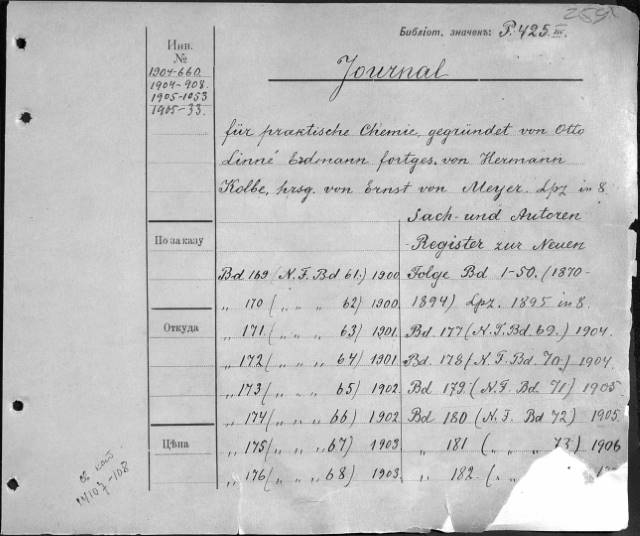 Библіот. значенъ: P. 425 III.
Инв.
№
1904-660.
1904-908.
1905-1053
1905-33.
Journal
für praktische Chemie, gegründet von Otto
Linné Erdmann fortges. von Hermann
Kolbe, hrsg. von Ernst von Meyer. Lpz in 8.
По заказу
Откуда
Цѣна
Bd 169 (N. F. Bd 61.) 1900
„ 170 ( „ „ „ 62) 1900.
„ 171 ( „ „ „ 63) 1901.
„ 172 ( „ „ „ 64) 1901.
„ 173 ( „ „ „ 65) 1902.
„ 174 ( „ „ „ 66) 1902
„ 175 ( „ „ „ 67) 1903
„ 176 ( „ „ „ 68) 1903.
Sach- und Autoren
-Register zur Neuen
Folge Bd 1-50. (1870-
1894) Lpz. 1895 in 8.
Bd. 177 (N. F. Bd 69.) 1904.
Bd. 178 (N. F. Bd. 70.) 1904
Bd. 179. (N. F. Bd. 71) 1905
Bd 180 (N. F. Bd 72) 1905.
„ 181 ( „ „ „ 73.) 1906
„ 182. ( „
14107-108